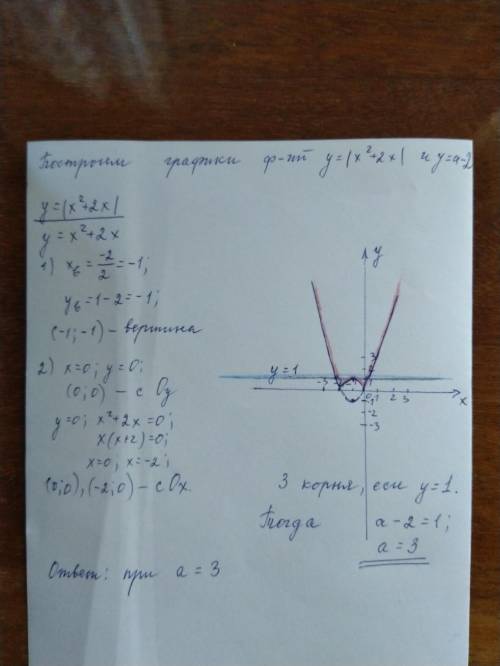 Построим графики ф-ий y=|x²+2x| и y=a-2
y=|x²+2x|
y = x²+2x
1) xв = -2/2 = -1;
yв = 1-2 = -1;
(-1; -1) - вершина
2) x=0; y=0;
(0; 0) - с Oy
y=0; x²+2x=0;
x(x+2)=0;
x=0; x=-2;
(0;0), (-2;0) - с Ox.
y
3
2
1
y=1
-3 -2 -1 0 1 2 3 x
-1
-2
-3
3 корня, если y=1.
Тогда a-2=1;
a=3
Ответ: при a=3